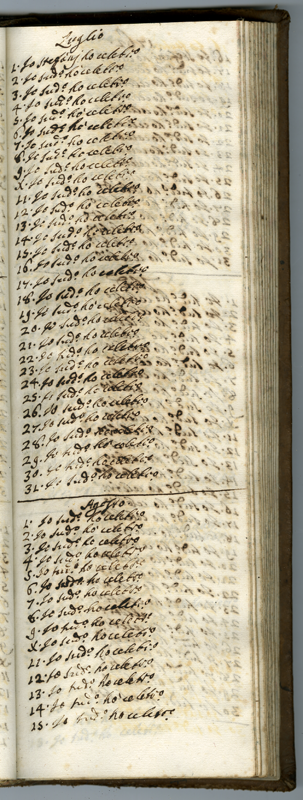 Luglio
1. Io Stefanj ho celebr.o
2. Io sud.o ho celebr.o
3. Io sud.o ho celebr.o
4. Io sud.o ho celebr.o
5. Io sud.o ho celebr.o
6. Io sud.o ho celebr.o
7. Io sud.o ho celebr.o
8. Io sud.o ho celebr.o
9. Io sud.o ho celebr.o
X. Io sud.o ho celebr.o
11. Io sud.o ho celebr.o
12. Io sud.o ho celebr.o
13. Io sud.o ho celebr.o
14. Io sud.o ho celebr.o
15. Io sud.o ho celebr.o
16. Io sud.o ho celebr.o
17. Io sud.o ho celebr.o
18. Io sud.o ho celebr.o
19. Io sud.o ho celebr.o
20. Io sud.o ho celebr.o
21. Io sud.o ho celebr.o
22. Io sud.o ho celebr.o
23. Io sud.o ho celebr.o
24. Io sud.o ho celebr.o
25. Io sud.o ho celebr.o
26. Io sud.o ho celebr.o
27. Io sud.o ho celebr.o
28. Io sud.o ho celebr.o
29. Io sud.o ho celebr.o
30. Io sud.o ho celebr.o
31. Io sud.o ho celebr.o
Agosto
1. Io sud.o ho celebr.o
2. Io sud.o ho celebr.o
3. Io sud.o ho celebr.o
4. Io sud.o ho celebr.o
5. Io sud.o ho celebr.o
6. Io sud.o ho celebr.o
7. Io sud.o ho celebr.o
8. Io sud.o ho celebr.o
9. Io sud.o ho celebr.o
X. Io sud.o ho celebr.o
11. Io sud.o ho celebr.o
12. Io sud.o ho celebr.o
13. Io sud.o ho celebr.o
14. Io sud.o ho celebr.o
15. Io sud.o ho celebr.o